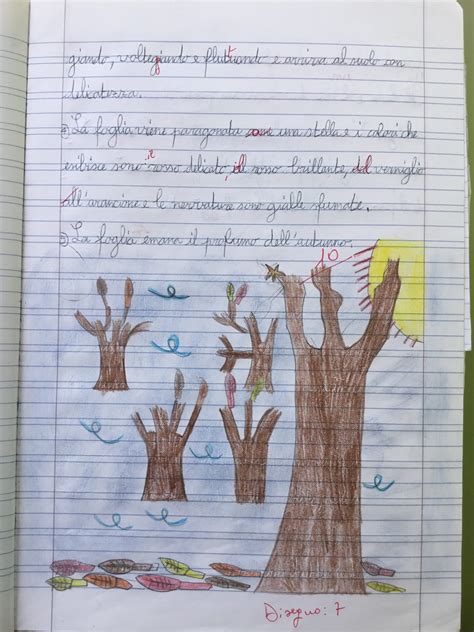 giando, volteggiando e fluttuando e arriva al suolo con
delicatezza.
4) La foglia viene paragonata come una stella e i colori che
esibisce sono il rosso delicato, il rosso brillante, dal vermiglio
all'arancione e le nervature sono gialle sfumate.
5) La foglia emana il profumo dell'autunno.
10
Disegno: 7